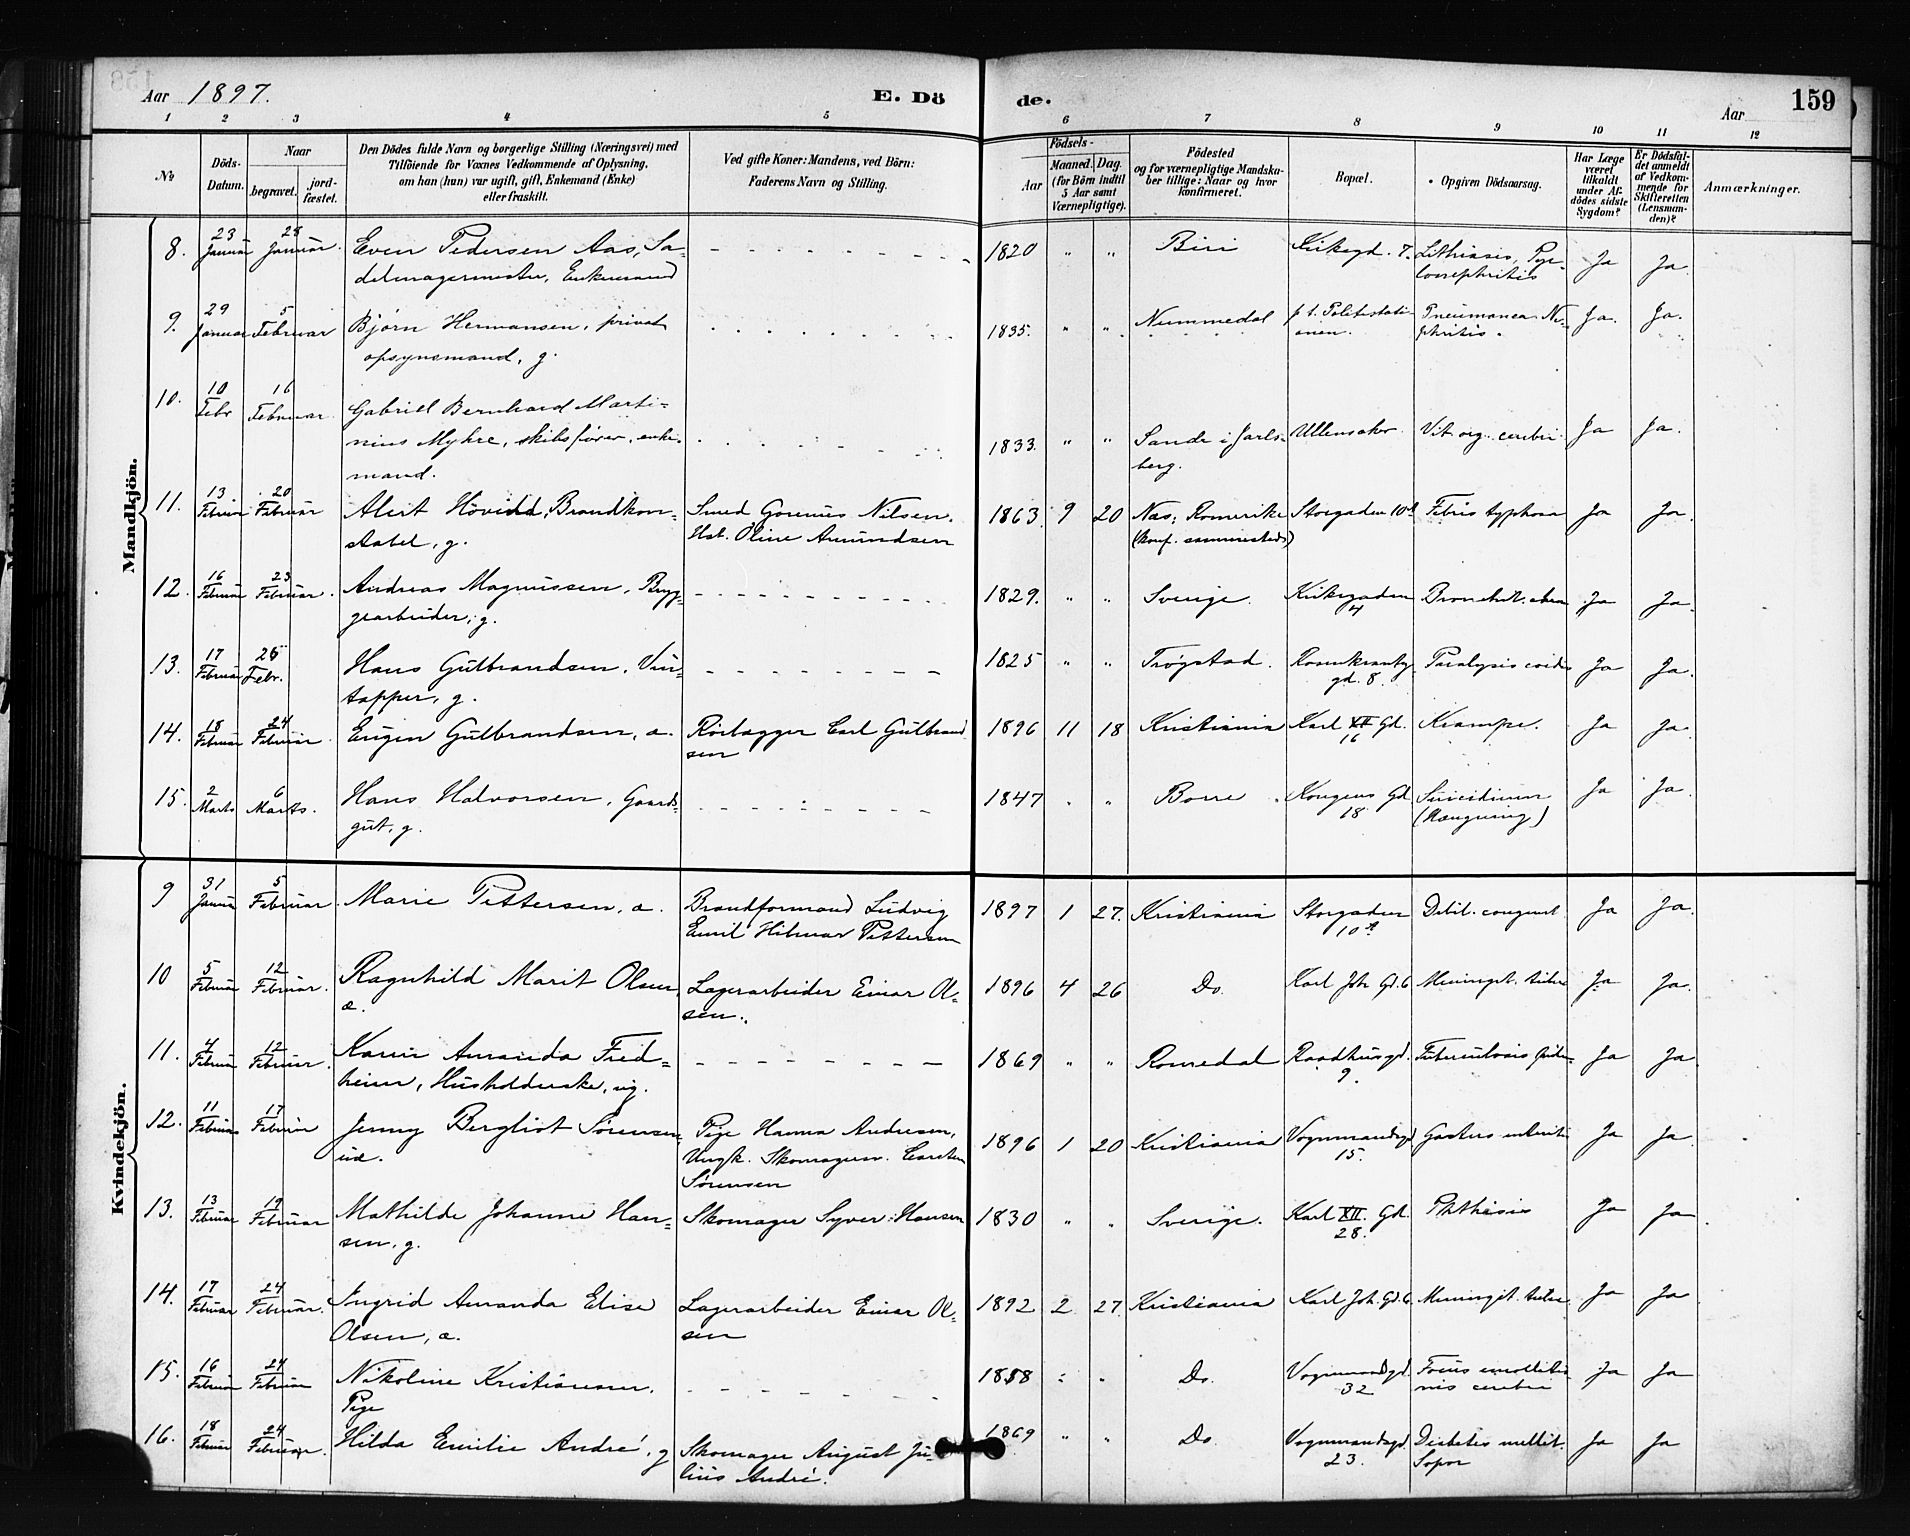 Aar 1897.
E. Dö de.
Aar
159
1 2 3 4 5 6 7 8 9 10 11 12
No
Döds-Datum.
Naar
begravet.
jord-fæstet.
Den Dödes fulde Navn og borgerlige Stilling (Næringsvei) med
Tilföiende for Voxnes Vedkommende af Oplysning,
om han (hun) var ugift, gift, Enkemand (Enke)
eller fraskilt.
Ved gifte Koner: Mandens, ved Börn:
Faderens Navn og Stilling.
Födsels-
Aar
Maaned. Dag.
(for Börn indtil
5 Aar samt
Værnepligtige).
Födested
og for værnepligtige Mandska-
ber tillige: Naar og hvor
konfirmeret.
Bopæl.
Opgiven Dödsaarsag.
Har Læge
været
tilkaldt
under Af-
dödes sidste
Sygdom?
Er Dödsfal-
det anmeldt
af Vedkom-
mende for
Skifteretten
(Lensman-
den)?
Anmærkninger.
Mandkjön.
8. 23 Januar 28 Januar. Even Pedersen Aas, Sa- 1820 " " Biri Kirkegd. 7. Lithiasis, Pye- Ja Ja
delmagermester, Enkemand lonephritis
9. 29 Januar 5 Februar Bjørn Hermansen, privat 1835. " " Nummedal p. t. Politistati- Pneumonea. Ne- Ja. Ja.
opsynsmand, g. onen. phritis.
10. 10 Febr 16 Februar Gabriel Bernhard Marti-
nius Myhre, skibsfører, enke- 1833. " " Sande i Jarls- Ullensaker. Vit. org. cerebri Ja Ja.
mand. berg.
11. 13 Februar 20 Februar Alert Hövide, Brandkon- Smed Gorenus Nilsen. 1863. 9 20 Næs; Romerike Storgaden 10 Febris typhosa Ja Ja.
stabel, g. Hst. Oline Amundsen (konf. sammesteds)
12. 16 Februar 23 Februar. Andreas Magnussen, Bryg- 1829. " " Sverige. Kirkegaden Ja Ja.
gearbeider, g. 4
13. 17 Februar 26 Febr. Hans Gulbrandsen, Vin- 1825 " " Trøgstad. Rosenkrantz Paralysis cordis Ja Ja.
tapper, g. gd. 8.
14. 18 Februar 24 Februar. Eugen Gulbrandsen, æ. Rörlægger Carl Gulbrand 1896 11 18 Kristiania Karl XII Gd. Krampe. Ja Ja.
sen 16
15. 2 Marts 6 Marts. Hans Halvorsen, Gaards- 1847 " " Borre Kongens Gd Suicidium Ja Ja.
gut, g. 18 (Hængning)
Kvindekjön.
9 31 Januar 5 Februar. Marie Pettersen, æ. Brandformand Ludvig 1897 1 27. Kristiania Storgaden Debil. congenit. Ja Ja.
Emil Hilmar Pettersen 10 A
10 5 Februar 12 Februar. Ragnhild Marit Olsen, Lagerarbeider Einar Ol- 1896 4 26 Do. Karl Joh Gd. 6 Meningit. tuber Ja Ja.
æ. sen.
11. 4 Februar 12 Februar. Karen Amanda Fred- 1869 " " Romedal Raadhusgd. Ja Ja
heim, Husholderske, ug. 9.
12. 11 Februar 17 Februar Jenny Bergliot Sørensen Pige Hanna Andresen, 1896 1 20 Kristiania Vognmandsgd Ja Ja
uæ. Ungk. Skomagersv. Carsten 15.
Sørensen
13. 13 Februar 19 Februar Mathilde Johanne Han- Skomager Syver Hansen 1830 " " Sverige. Karl XII. Gd. Phthisis Ja Ja
sen, g. 28.
14. 17 Februar 24 Februar. Ingrid Amanda Elise Lagerarbeider Einar Ol- 1892 2 27. Kristiania Karl Joh. Gd. 6 Meningit. tuber Ja Ja
Olsen, æ. sen
15. 16 Februar 24 Februar Nikoline Kristiansen. 1858 " " Do. Vognmandsgd. Focus emollitio Ja Ja
Pige 32 nis cerebri
16. 18 Februar 24 Februar. Hilda Emilie André, g Skomager August Ju- 1869 " " Do. Vognmandsgd. Diabetes mellit. Ja Ja
lius André. 23. Sopor